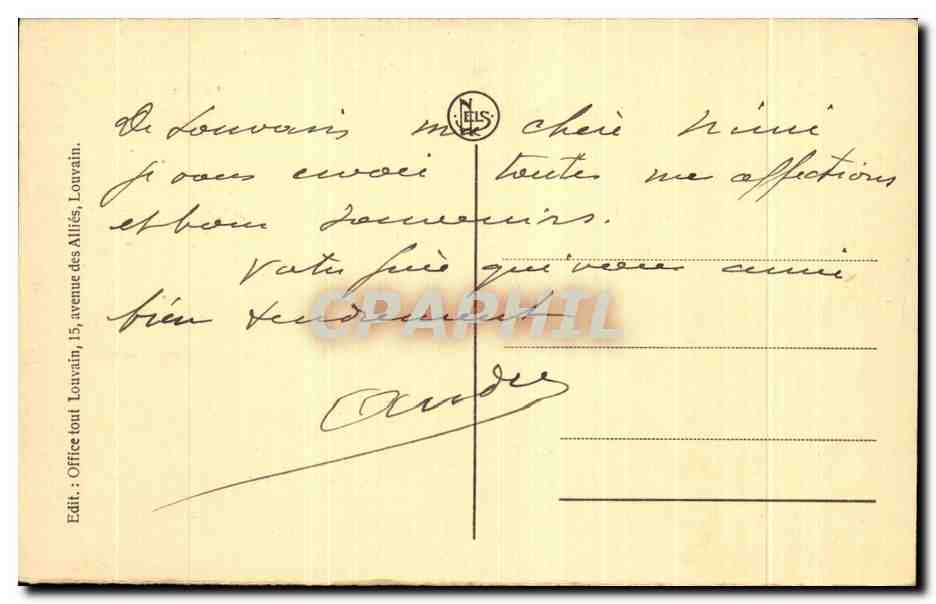 NELS
De Louvain ma chère Nini
je vous envoie toutes me affections
et bons souvenirs.
Votre frère qui vous aime
bien tendrement
André
CPAPHIL
Edit. : Office tout Louvain, 15, avenue des Alliés, Louvain.